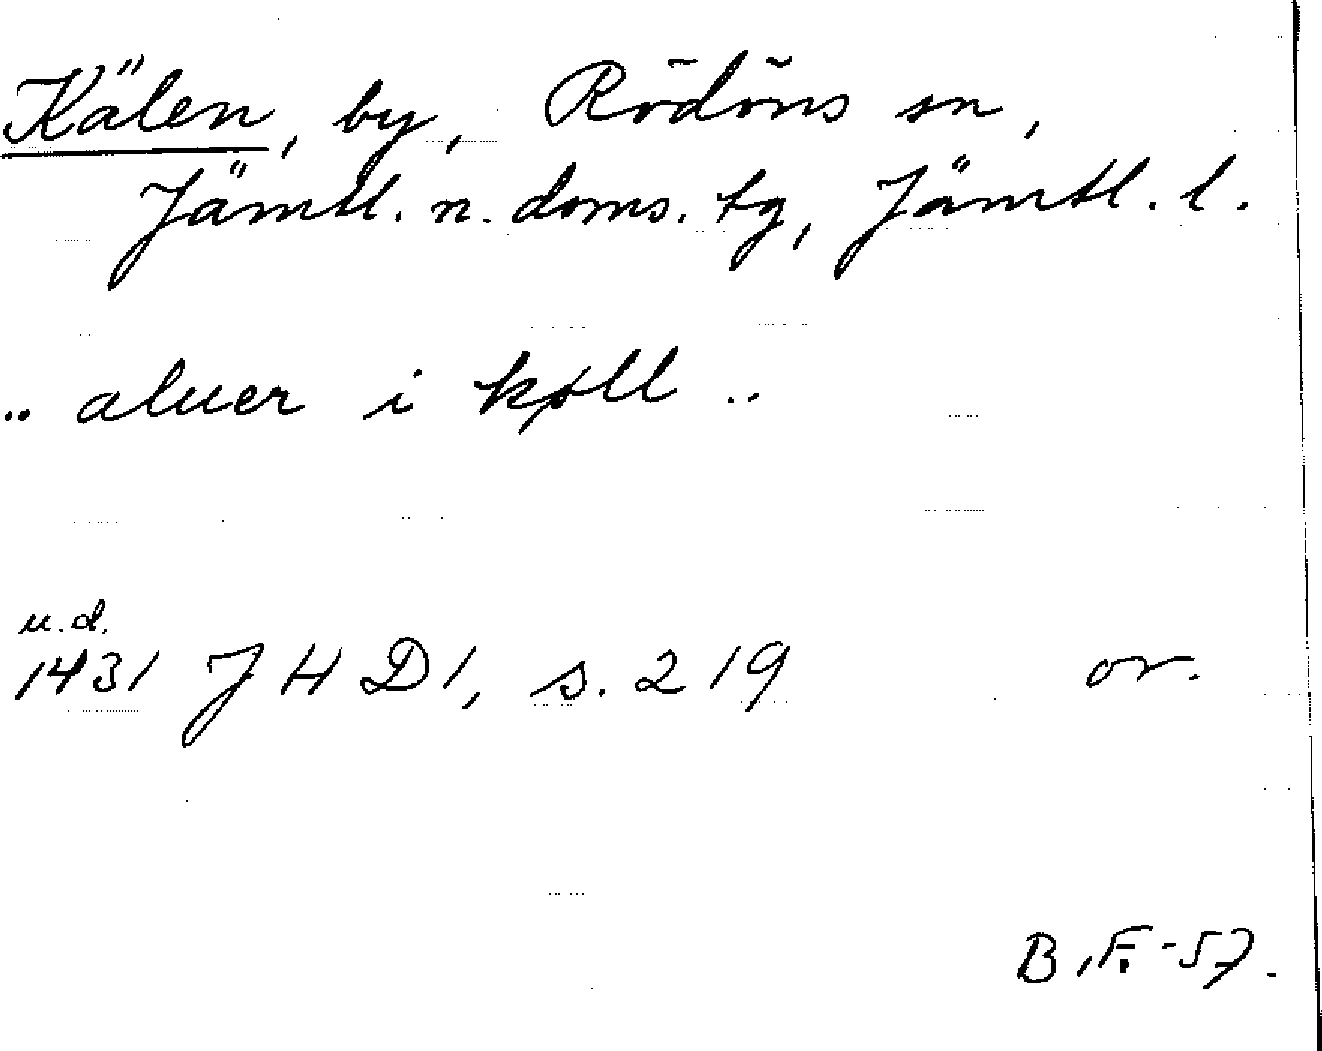 Kälen, by, Rödöns sn,
Jämtl. n. doms. tg, Jämtl. l.
.. aluer i køll ..
u.d.
1431 J H D 1, s. 219 or.
B.F. -57.